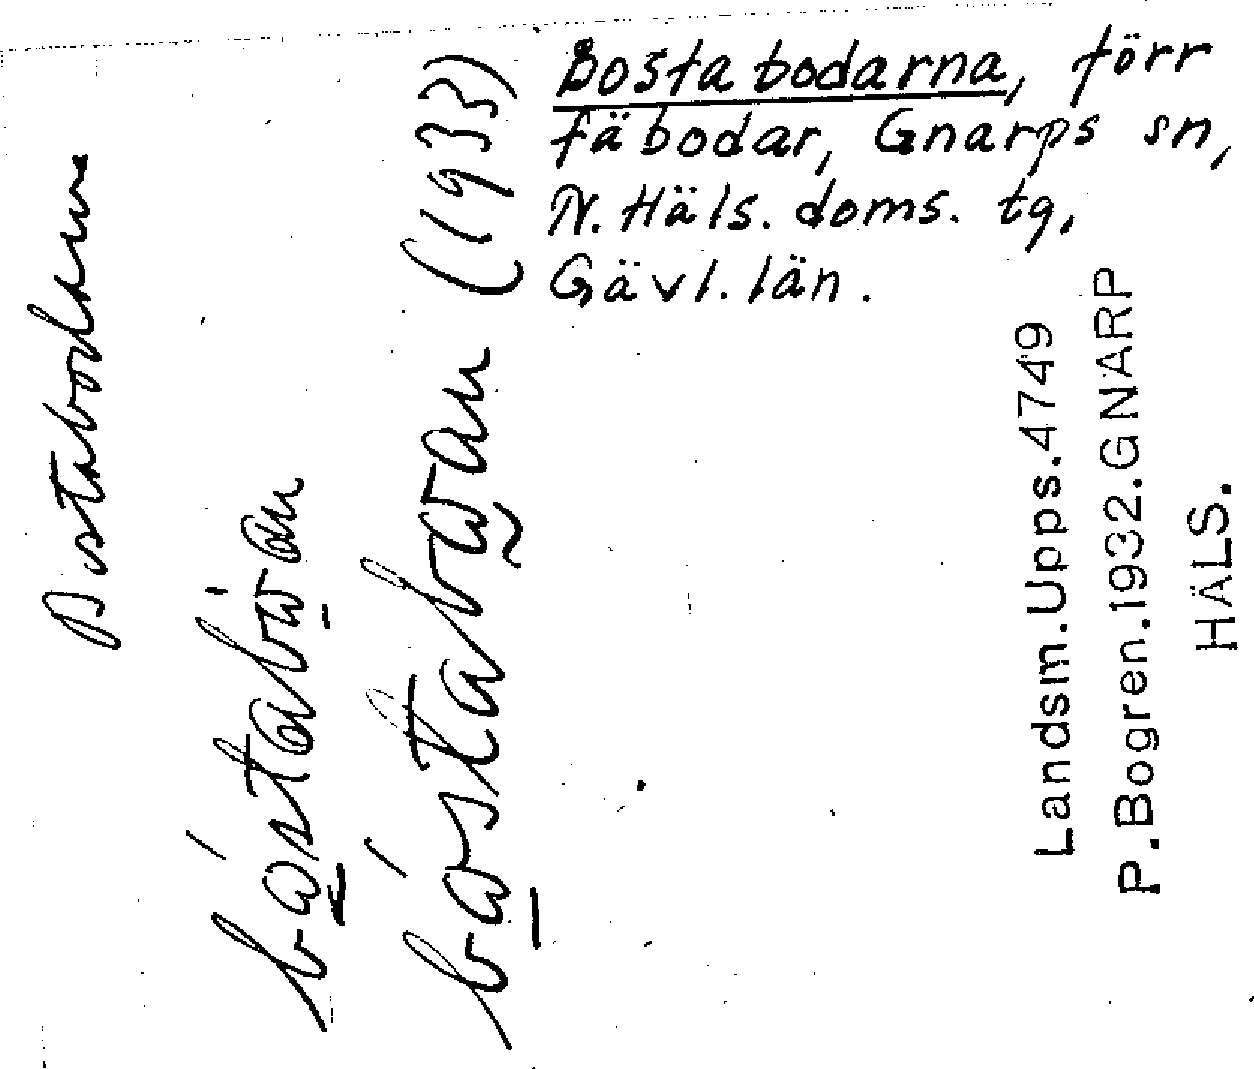 Bostabodarna, förr
fäbodar, Gnarps sn,
N. Häls. doms. tg,
Gävl. län.
Bostabodarna
(1933)
Landsm.Upps.4749
P.Bogren.1932.GNARP
HÄLS.